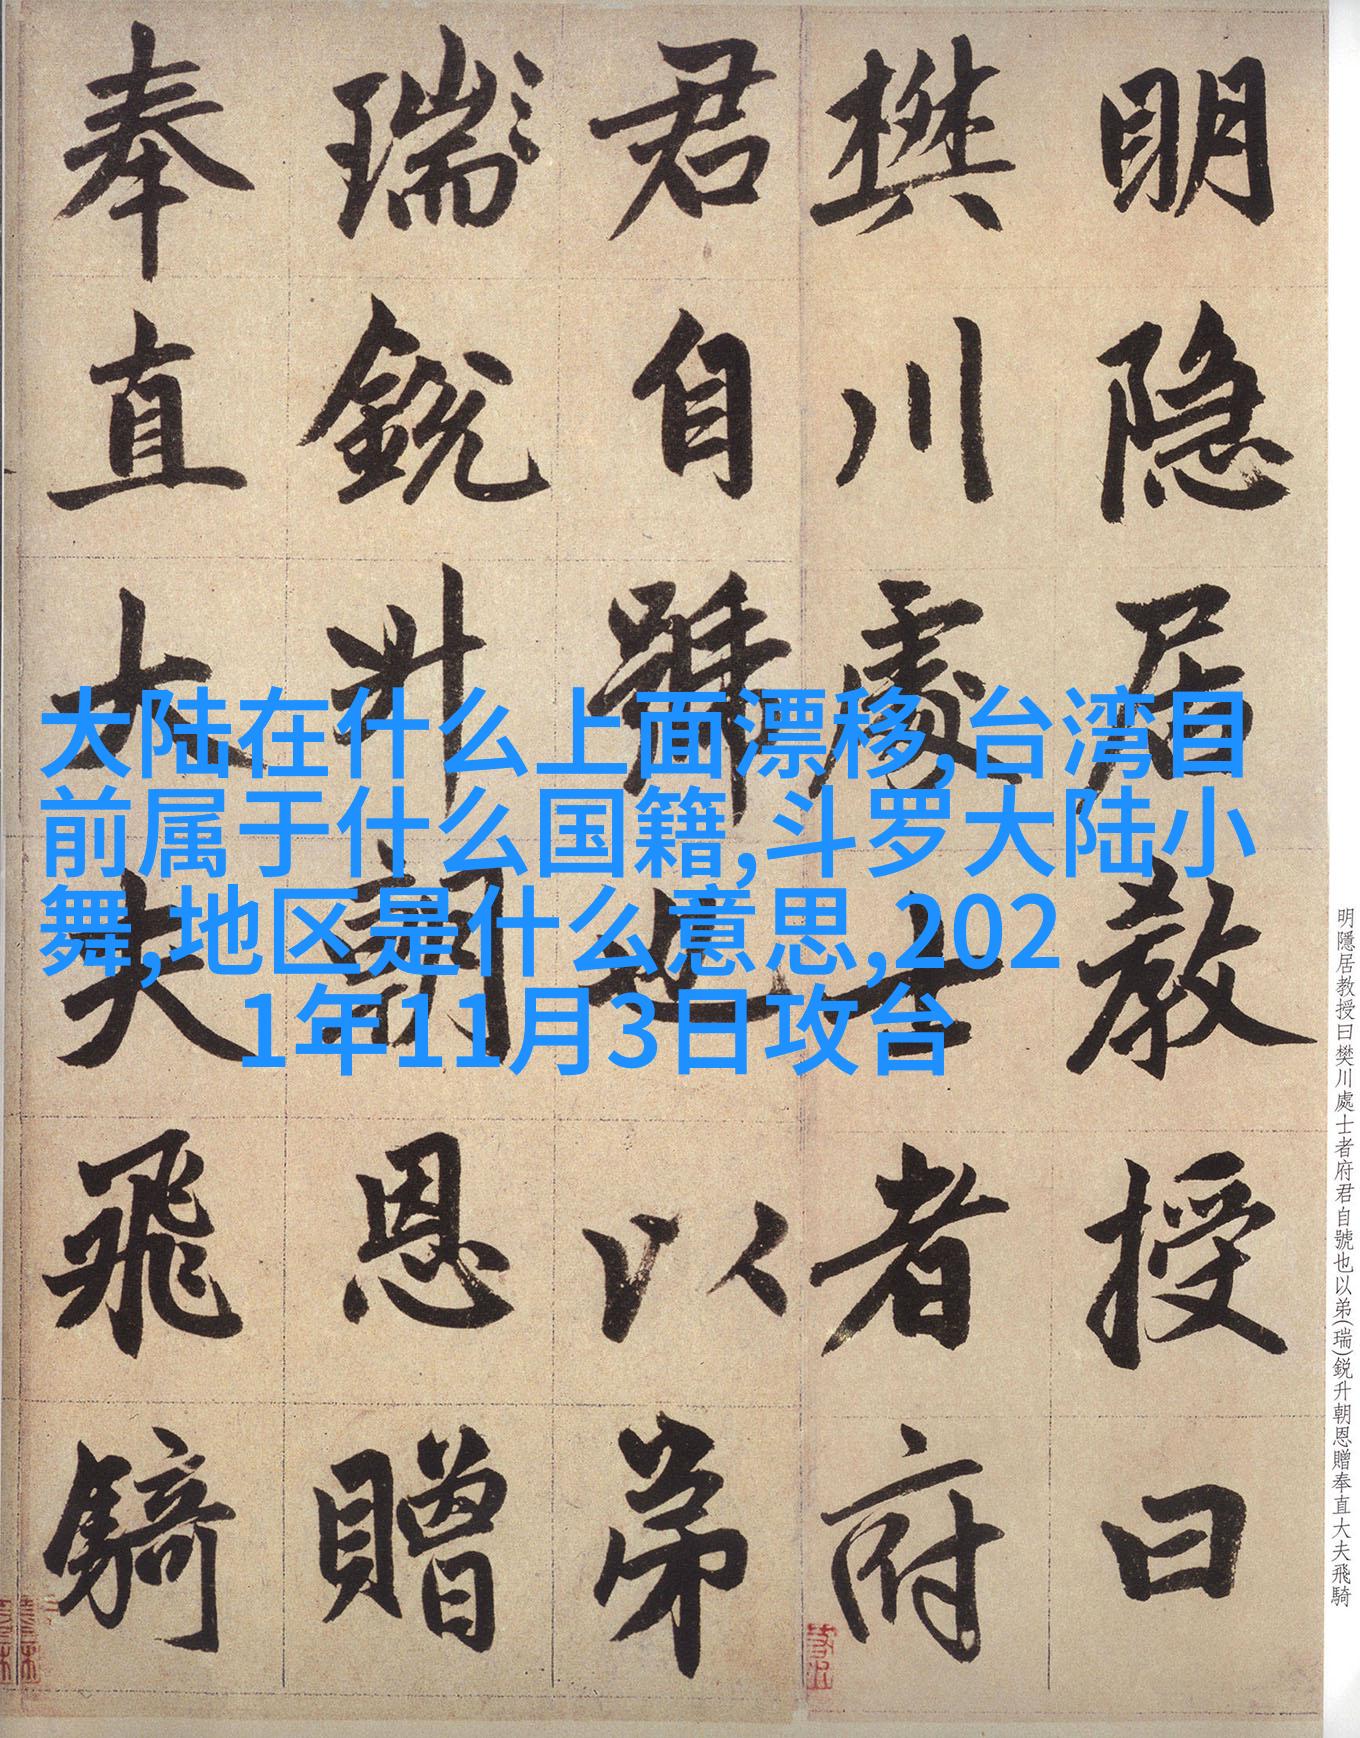 明隐居教授曰
樊川處士者府
君自號也以弟
瑞銳升朝恩贈
奉直大夫飛騎
大陆在什么上面漂移,台湾目
前属于什么国籍,斗罗大陆小
舞,地区是什么意思,202
1年11月3日攻台
明隱居教授曰樊川處士者府君自號也以弟(瑞)鋭升朝恩贈奉直大夫飛騎